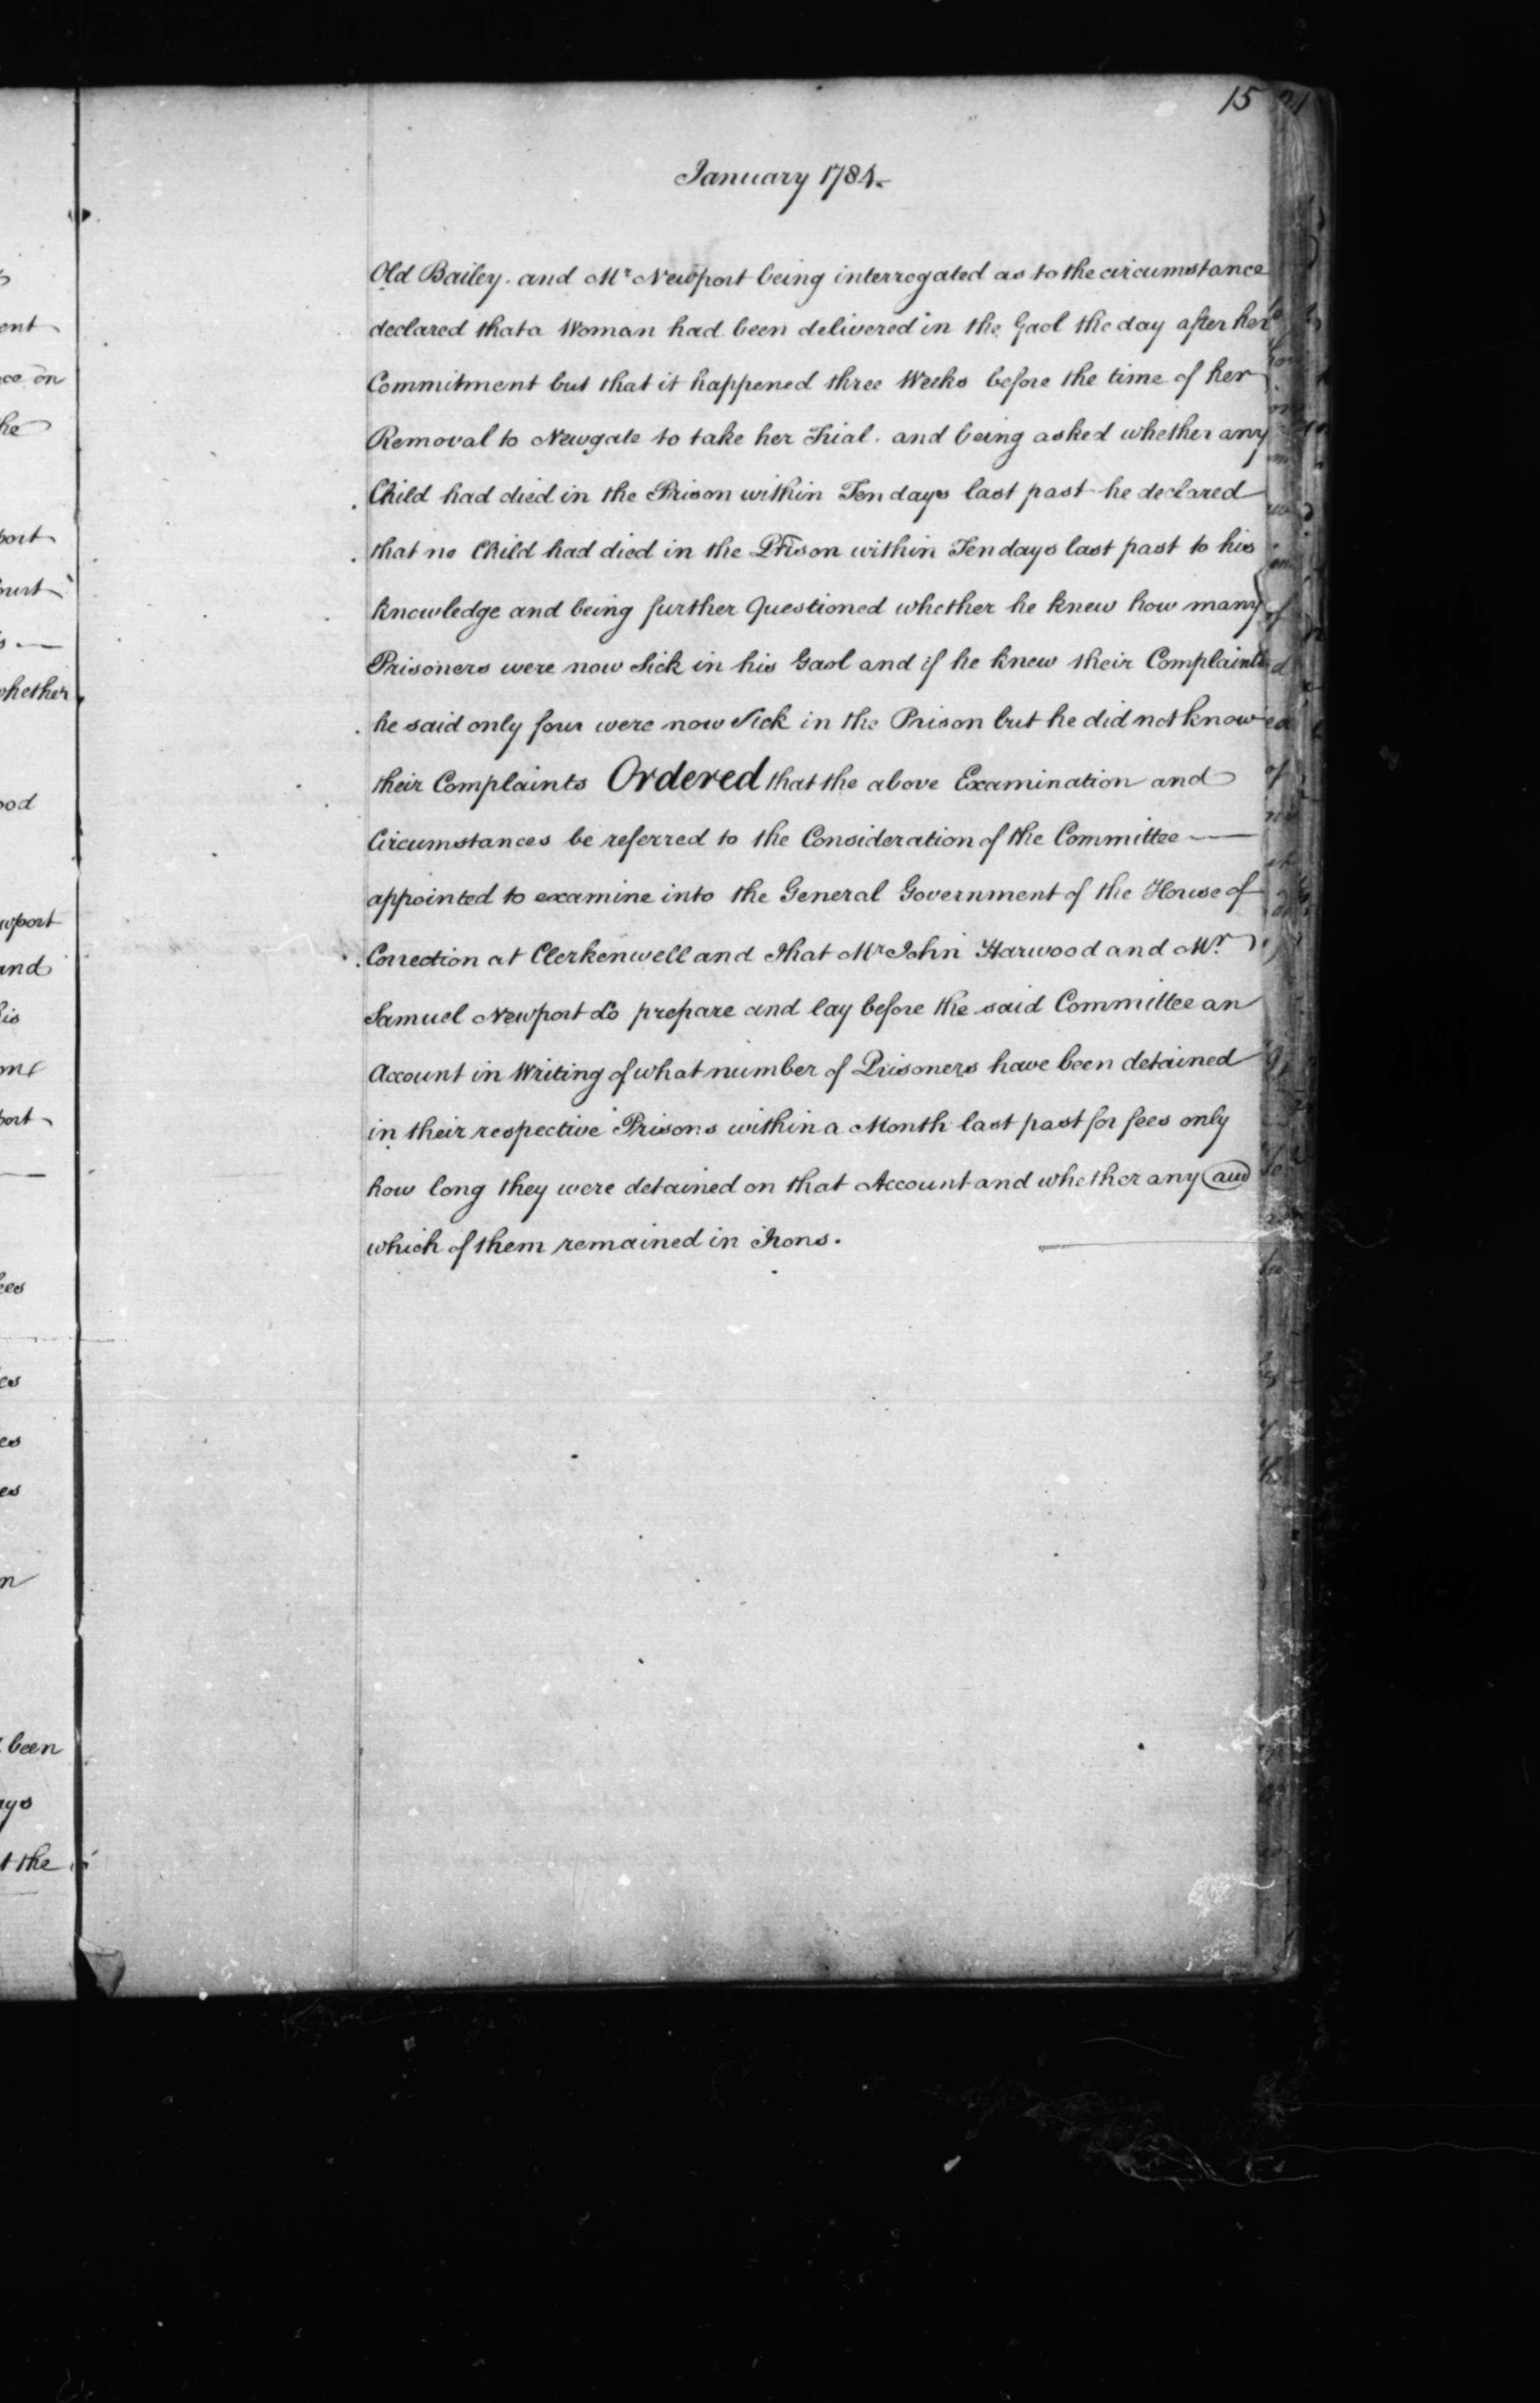 15
January 1784.
Old Bailey. and Mr Newport being interrogated as to the circumstance
declared that a Woman had been delivered in the Gaol the day after her
Commitment but that it happened three Weeks before the time of her
Removal to Newgate to take her Trial. and being asked whether any
Child had died in the Prison within Ten days last past he declared
that no Child had died in the Prison within Ten days last past to his
knowledge and being further Questioned whether he knew how many
Prisoners were now Sick in his Gaol and if he knew their Complaints
he said only four were now Sick in the Prison but he did not know
their Complaints Ordered that the above Examination and
Circumstances be referred to the Consideration of the Committee
appointed to examine into the General Government of the House of
Correction at Clerkenwell and That Mr John Harwood and Mr.
Samuel Newport Do prepare and lay before the said Committee an
Account in Writing of what number of Prisoners have been detained
in their respective Prisons within a Month last past for fees only
how long they were detained on that Account and whether any and
which of them remained in Irons.
ent
on
he
port
whether
ood
and
his
port
been
the